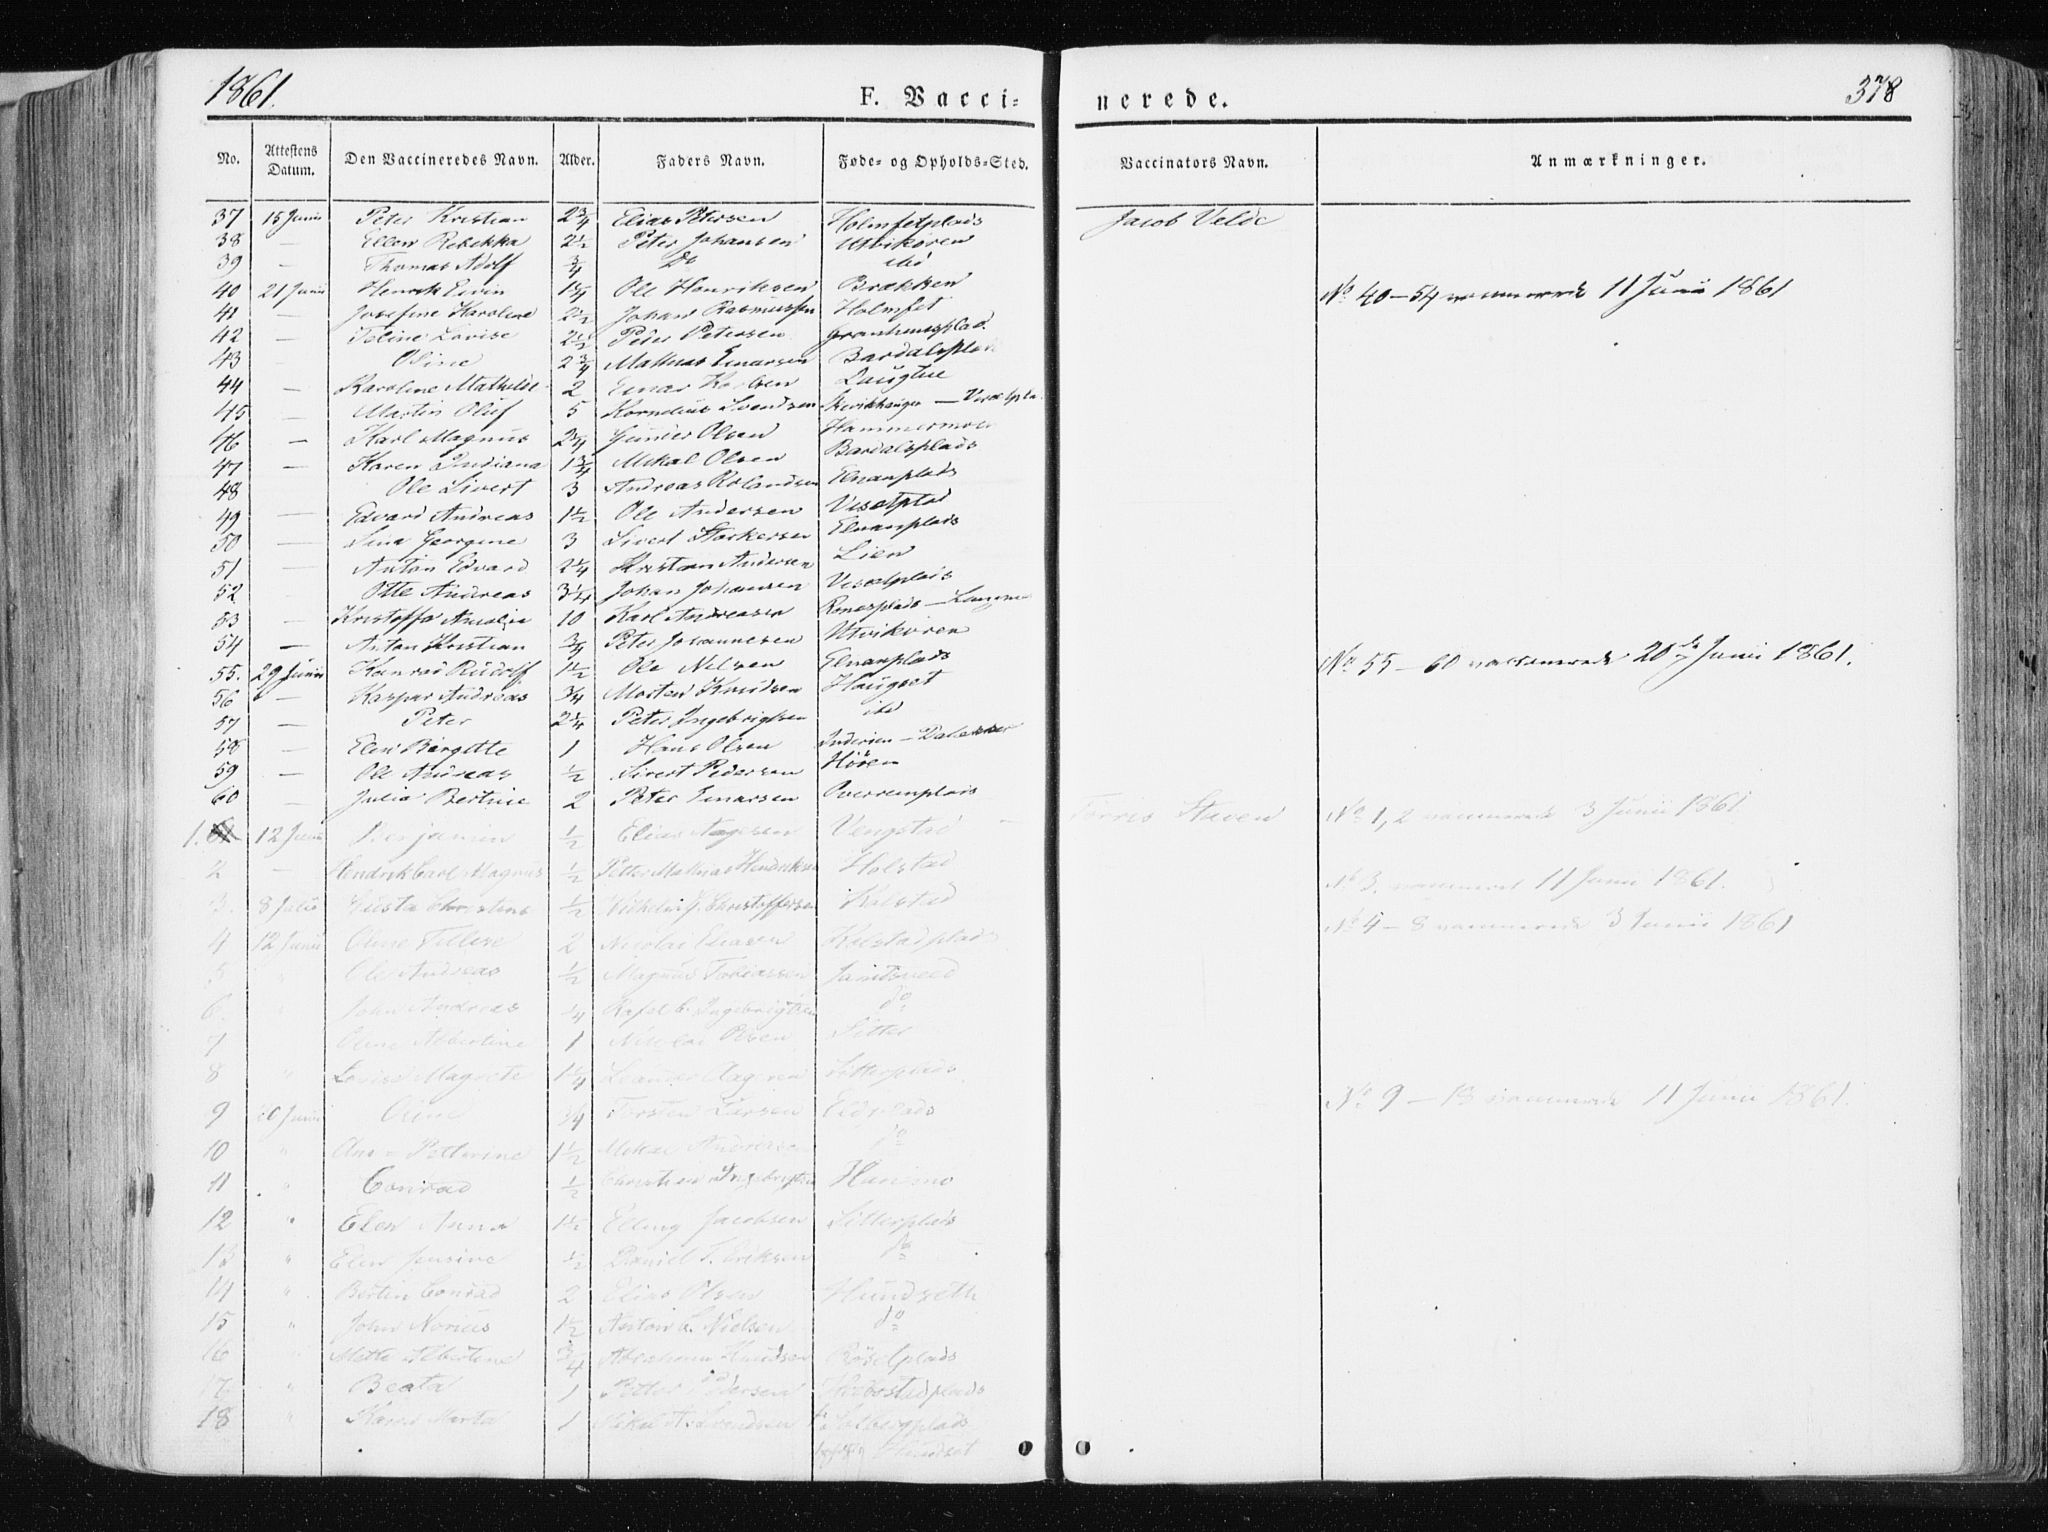 1861.
F. Vacci-
nerede.
378
No.
Attestens Datum.
Den Vaccineredes Navn.
Alder.
Faders Navn.
Føde- og Opholds-Sted.
Vaccinators Navn.
Anmærkninger.
37 15 Junii Peter Kristian 2 3/4 Elias Petersen Holmsetplads Jacob Velde
38 — Ellen Rebekka 2 1/2 Peter Johansen Utvikøren
39 — Thomas Adolf 3/4 Do ibid
40 21 Junii Henrik Eivin 1 3/4 Ole Henriksen Brækken No 40–54 vaccinerede 11 Junii 1861
41 — Josefine Karoline 2 1/2 Johan Rasmussen Holmset
42 — Feline Lovise 2 1/2 Peter Petersen
43 — Oline 2 3/4 Mathias Einarsen Bardalsplads
44 — Karoline Mathilde 2 Einar Karlsen
45 — Martin Oluf 5 Kornelius Svendsen
46 — Karl Magnus 2 3/4 Gunder Olsen Hammermoen
47 — Karen Indiana 1 3/4 Mikal Olsen Bardalsplads
48 Ole Sivert 3 Andreas Rolandsen Elnanplads
49 — Edvard Andreas 1 1/2 Ole Andersen Viselplad
50 — Lina Georgine 3 Sivert Starkersen Elnanplads
51 — Anton Edvard 2 1/4 Kristian Andersen Lien
52 — Otte Andreas 3 1/4 Johan Johansen Viselplads
53 — Kristoffa Amalie 10 Karl Andreasen
54 — Anton Kristian 3/4 Peter Johannesen Utvikøren
55. 29 Junii Konrad Rudolf 1 1/2 Ole Nilsen Elnanplads No 55–60 vaccinerede 20de Junii 1861.
56 — Kaspar Andreas 3/4 Morten Knudsen Haugset
57 — Peter 2 1/4 Peter Ingebrigtsen ibd
58 — Elen Bergitte 1 Hans Olsen
59 — Ole Andreas 1/2 Sivert Pedersen Høøen
60 — Julia Bertine 2 Peter Einarsen
1. 12 Junii Benjamin 1/2 Elias Aagesen Vengstad Torris Staven No 1, 2 vaccinerede 3 Junii 1861
2 — Hendrik Carl Magnus 1/2 Petter Mathias Hendriksen Holstad
3. 8 Julii 1/2 Christoffersen Kolstad No 3. vaccineret 11 Junii 1861.
4 12 Junii Oline 2 Nicolai Kolstadplads No 4–8 vaccinerede 3 Junii 1861
5 " Ole Andreas 1/2 Magnus Tobiassen
6. " John Andreas 1/4 Ingebrigtsen do
7 Oline Albertine 1 Nicolai Olsen Sitter
8 " Lovise Magrete 1 1/4 Leander Aagesen Sitterplads
9 20 Junii Oline 1/4 Torsten Larsen Eidsplads No 9–18 vaccinerede 11 Junii 1861.
10 " Ane Petterine 1 1/2 Mikal Andersen do
11 " Conrad 1/2 Christian Ingebrigtsen
12 " Elen Anna 1 1/2 Elling Jacobsen Sitterplads
13 " Elen Jensine 1/2 Daniel T. Eriksen do
14 " Bertin Conrad 2 Elias Olsen Hundseth
15 " John Norius 1 1/2 Anton C. Nielsen do
16 " Mette Albertine 3/4 Abraham Knudsen Røsetplads
17 " Beata 1 Petter Pedersen
18 " Karen Marta 1 Mikal A. Svendsen Solbergplads
Hundset